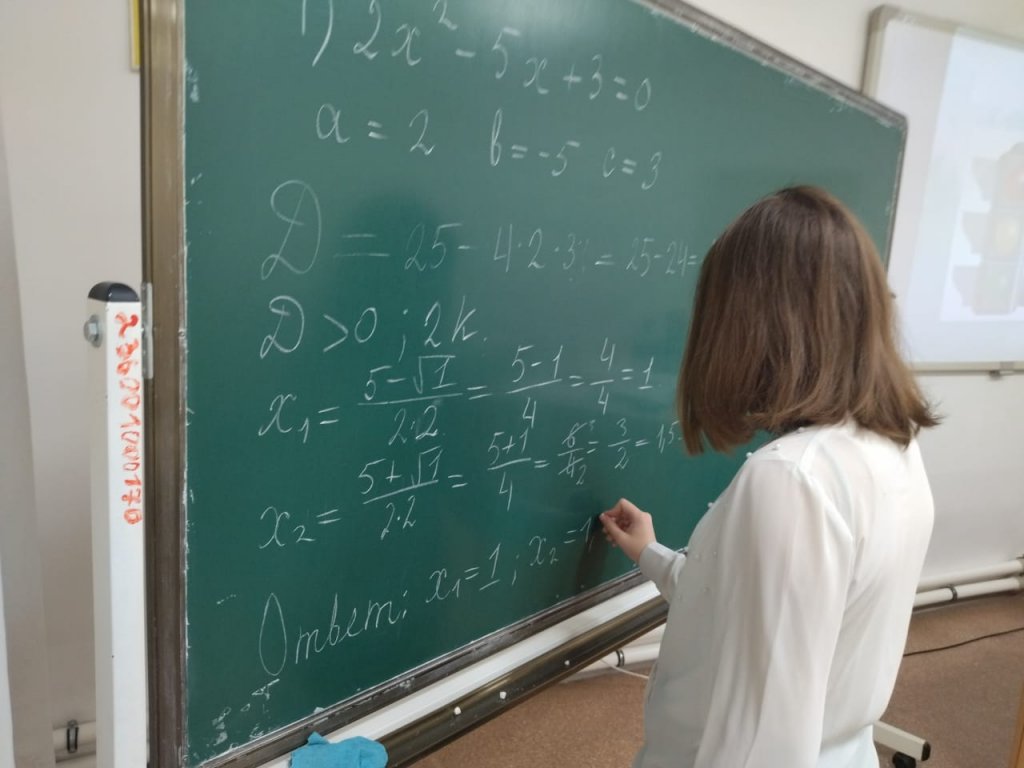 1) 2x² - 5x + 3 = 0
a = 2 b = -5 c = 3
D = 25 - 4·2·3 = 25 - 24 =
D > 0 ; 2 k.
x₁ = (5 - √1)/(2·2) = (5 - 1)/4 = 4/4 = 1
x₂ = (5 + √1)/(2·2) = (5 + 1)/4 = 6³/4₂ = 3/2 = 1,5
Ответ: x₁ = 1 ; x₂ = 1
2360010000170